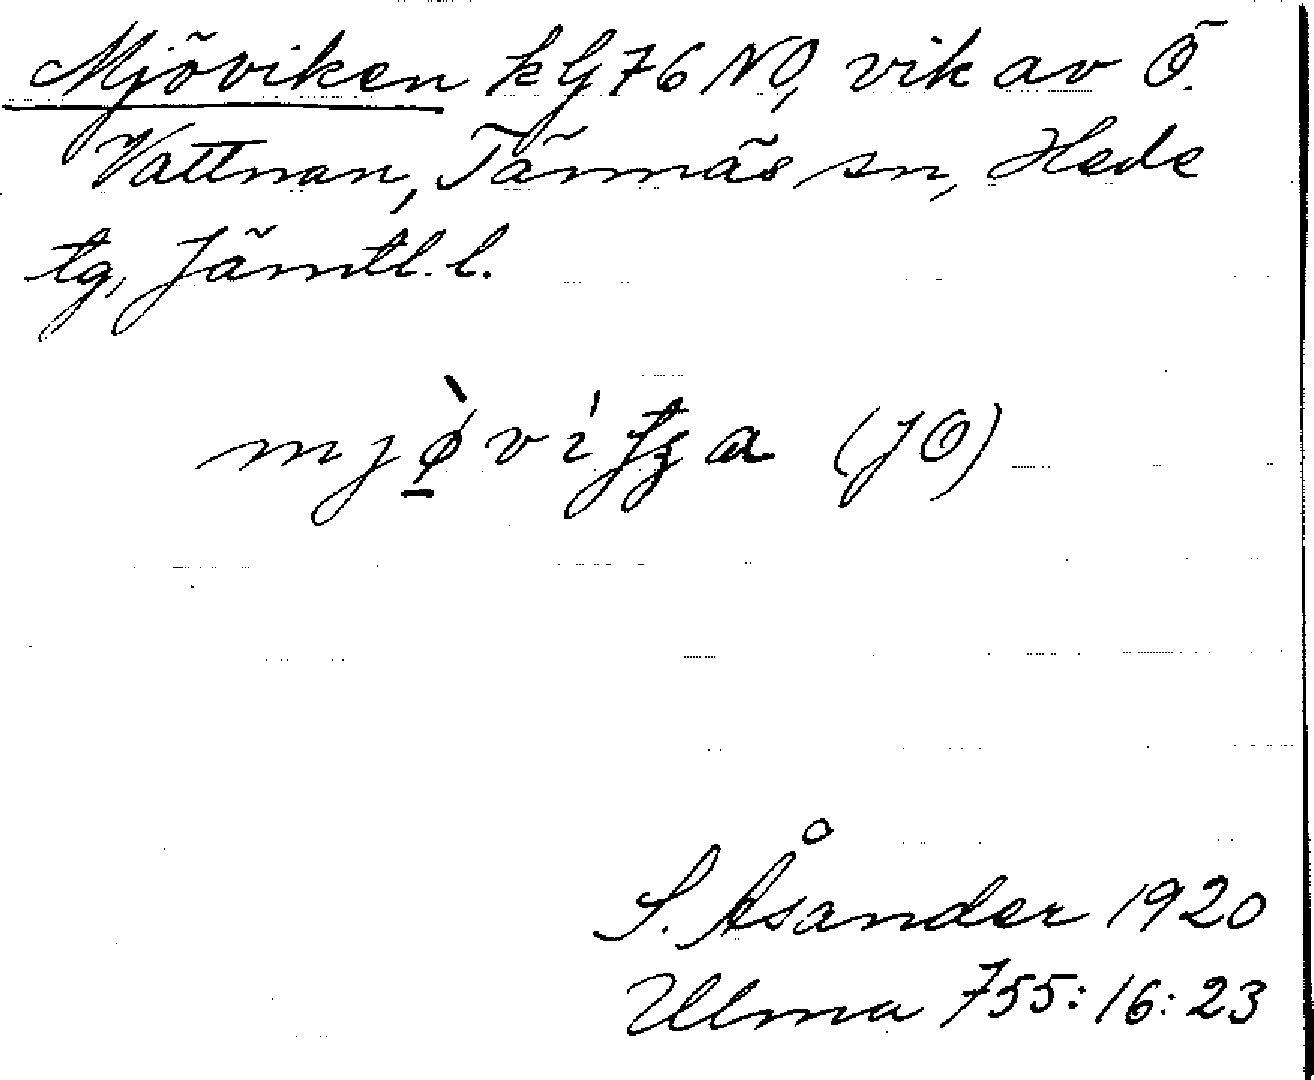 Mjöviken kG 76 NO, vik av Ö.
Vattnan, Tännäs sn, Hede
tg, Jämtl. l.
(JO)
S. Åsander 1920
Ulma 755:16:23